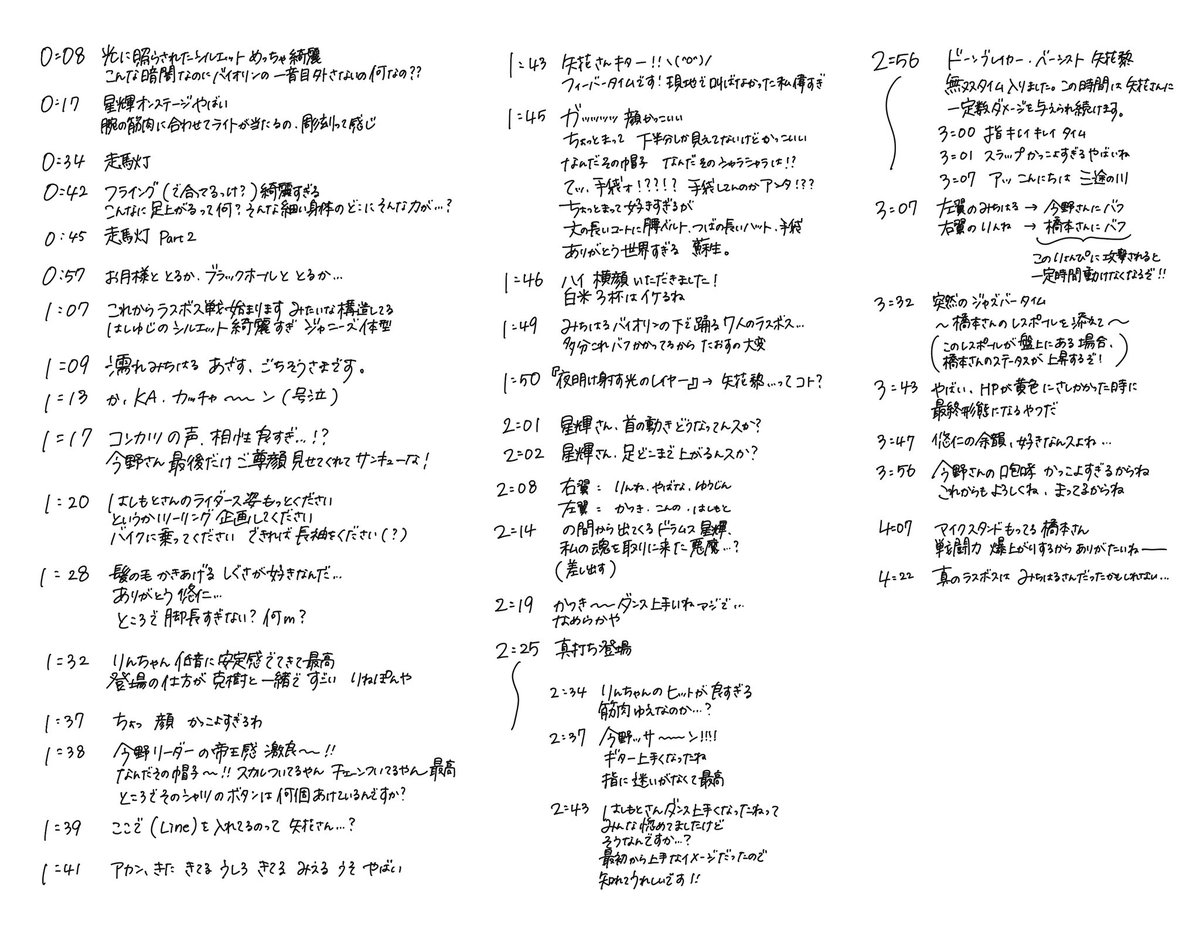 0:08 光に照らされたシルエット めっちゃ綺麗
こんな暗闇なのにバイオリンの一音目外さないの何なの??
0:17 星輝オンステージやばい
腕の筋肉に合わせてライトが当たるの、彫刻って感じ
0:34 走馬灯
0:42 フライング(で合ってるっけ?)綺麗すぎる
こんなに足上がるって何?そんな細い身体のどこにそんな力が…?
0:45 走馬灯 Part2
0:57 お月様ととるか、ブラックホールととるか…
1:07 これからラスボス戦始まります みたいな構造してる
はしゆじのシルエット綺麗すぎ ジャニーズ体型
1:09 濡れみちはる あざす、ごちそうさまです。
1:13 か、KA、カッチャ〜〜ン(号泣)
1:17 コンカツの声、相性良すぎ…!?
今野さん最後だけご尊顔見せてくれてサンキューな!
1:20 はしもとさんのライダース姿もっとください
というかツーリング企画してください
バイクに乗ってください できれば長袖をください(?)
1:28 髪の毛かきあげるしぐさが好きなんだ…
ありがとう悠仁…
ところで脚長すぎない?何m?
1:32 りんちゃん低音に安定感でてきて最高
登場の仕方が克樹と一緒ですごい りねぽんや
1:37 ちょっ 顔 かっこよすぎるわ
1:38 今野リーダーの帝王感 激良〜!!
なんだその帽子〜!! スカルついてるやん チェーンついてるやん 最高
ところでそのシャツのボタンは何個あけているんですか?
1:39 ここで(Line)を入れてるのって 矢花さん…?
1:41 アカン、きた きてる うしろ きてる みえる うそ やばい
1:43 矢花さんキター!!ヽ(^o^)/
フィーバータイムです!現地で叫ばなかった私偉すぎ
1:45 ガッッッッッ 顔かっこいい
ちょっとまって 下半分しか見えてないけどかっこいい
なんだその帽子 なんだそのシャラシャラは!?
てッ、手袋ォ!???!? 手袋してんのかアンタ!??
ちょっとまって好きすぎるが
丈の長いコートに腰ベルト、つばの長いハット、手袋
ありがとう世界すぎる 蘇生。
1:46 ハイ 横顔いただきました!
白米3杯はイケるね
1:49 みちはるバイオリンの下で踊る7人のラスボス…
多分これバフかかってるから たおすの大変
1:50 『夜明け射す光のレイヤー』→ 矢花黎…ってコト?
2:01 星輝さん、首の動きどうなってんスか?
2:02 星輝さん、足どこまで上がるんスか?
2:08 右翼: りんね、やばな、ゆうじん
左翼: かつき、こんの、はしもと
2:14 の間から出てくるドラムス星輝、
私の魂を取りに来た悪魔…?
(差し出す)
2:19 かつき〜〜ダンス上手いねマジで…
なめらかや
2:25 真打ち登場
2:34 りんちゃんのヒットが良すぎる
筋肉ゆえなのか…?
2:37 今野ッサ〜〜〜ン!!!!
ギター上手くなったね
指に迷いがなくて最高
2:43 はしもとさんダンス上手くなったねって
みんな褒めてましたけど
そうなんですか…?
最初から上手なイメージだったので
知れてうれしいです!!
2:56 ドーンブレイカー・バーシスト 矢花黎
無双タイム入りました。この時間は矢花さんに
一定数ダメージを与えられ続けます。
3:00 指キレイキレイタイム
3:01 スラップかっこよすぎるやばいね
3:07 アッ こんにちは 三途の川
3:07 左翼のみちはる → 今野さんにバフ
右翼のりんね → 橋本さんにバフ
このりょんぴに攻撃されると
一定時間動けなくなるぞ!!
3:32 突然のジャズバータイム
〜橋本さんのレスポールを添えて〜
(このレスポールが盤上にある場合、
橋本さんのステータスが上昇するぞ!)
3:43 やばい、HPが黄色にさしかかった時に
最終形態になるやつだ
3:47 悠仁の余韻、好きなんスよね…
3:56 今野さんの咆哮 かっこよすぎるからね
これからもよろしくね、まってるからね
4:07 マイクスタンドもってる橋本さん
戦闘力 爆上がりするからありがたいね――
4:22 真のラスボスは みちはるさんだったかもしれない…